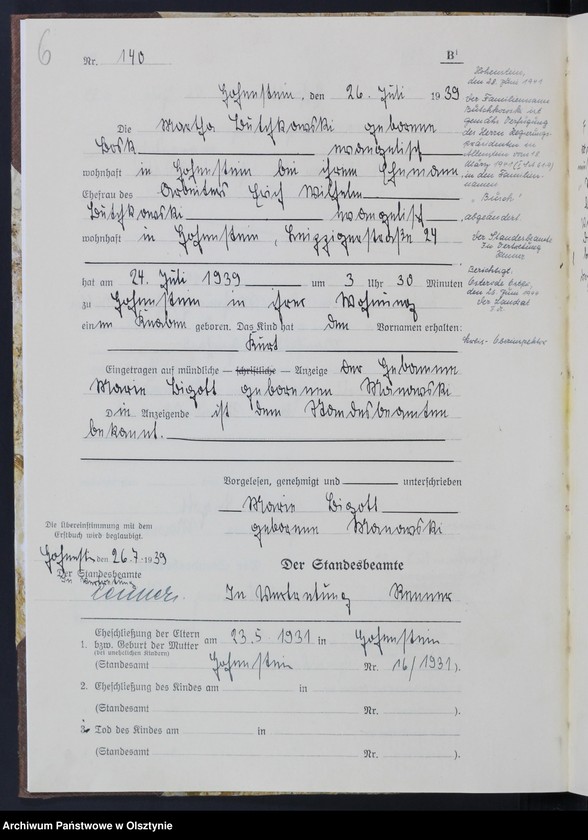 6
Nr. 140
B¹
Hohenstein, den 26. Juli 1939
Die Martha Butschkowski geborene
evangelisch
wohnhaft in Hohenstein bei ihrem Ehemann
Ehefrau des Arbeiters Erich Wilhelm
Butschkowski evangelisch
wohnhaft in Hohenstein, Leipzigerstraße 24
hat am 24. Juli 1939 um 3 Uhr 30 Minuten
zu Hohenstein in ihrer Wohnung
einen Knaben geboren. Das Kind hat den Vornamen erhalten:
Kurt
Eingetragen auf mündliche – schriftliche – Anzeige der Hebamme
Marie Bigott geborenen Manowski
Die Anzeigende ist dem Standesbeamten
bekannt.
Vorgelesen, genehmigt und unterschrieben
Marie Bigott
geborene Manowski
Die Übereinstimmung mit dem
Erstbuch wird beglaubigt.
Hohenst. den 26.7.1939
Der Standesbeamte
In Vertretung
Renner
Der Standesbeamte
In Vertretung Renner
1. Eheschließung der Eltern am 23.5 1931 in Hohenstein
bzw. Geburt der Mutter
(bei unehelichen Kindern)
(Standesamt Hohenstein Nr. 16/1931).
2. Eheschließung des Kindes am in
(Standesamt Nr. ).
3. Tod des Kindes am in
(Standesamt Nr. ).
Hohenstein,
Der Familienname
gemäß Verfügung
des Herrn Regierungs-
präsidenten in
Allenstein vom 18
in den Familien-
namen
abgeändert.
Der Standesbeamte
In Vertretung
Renner
Berichtigt.
Der Landrat
Archiwum Państwowe w Olsztynie